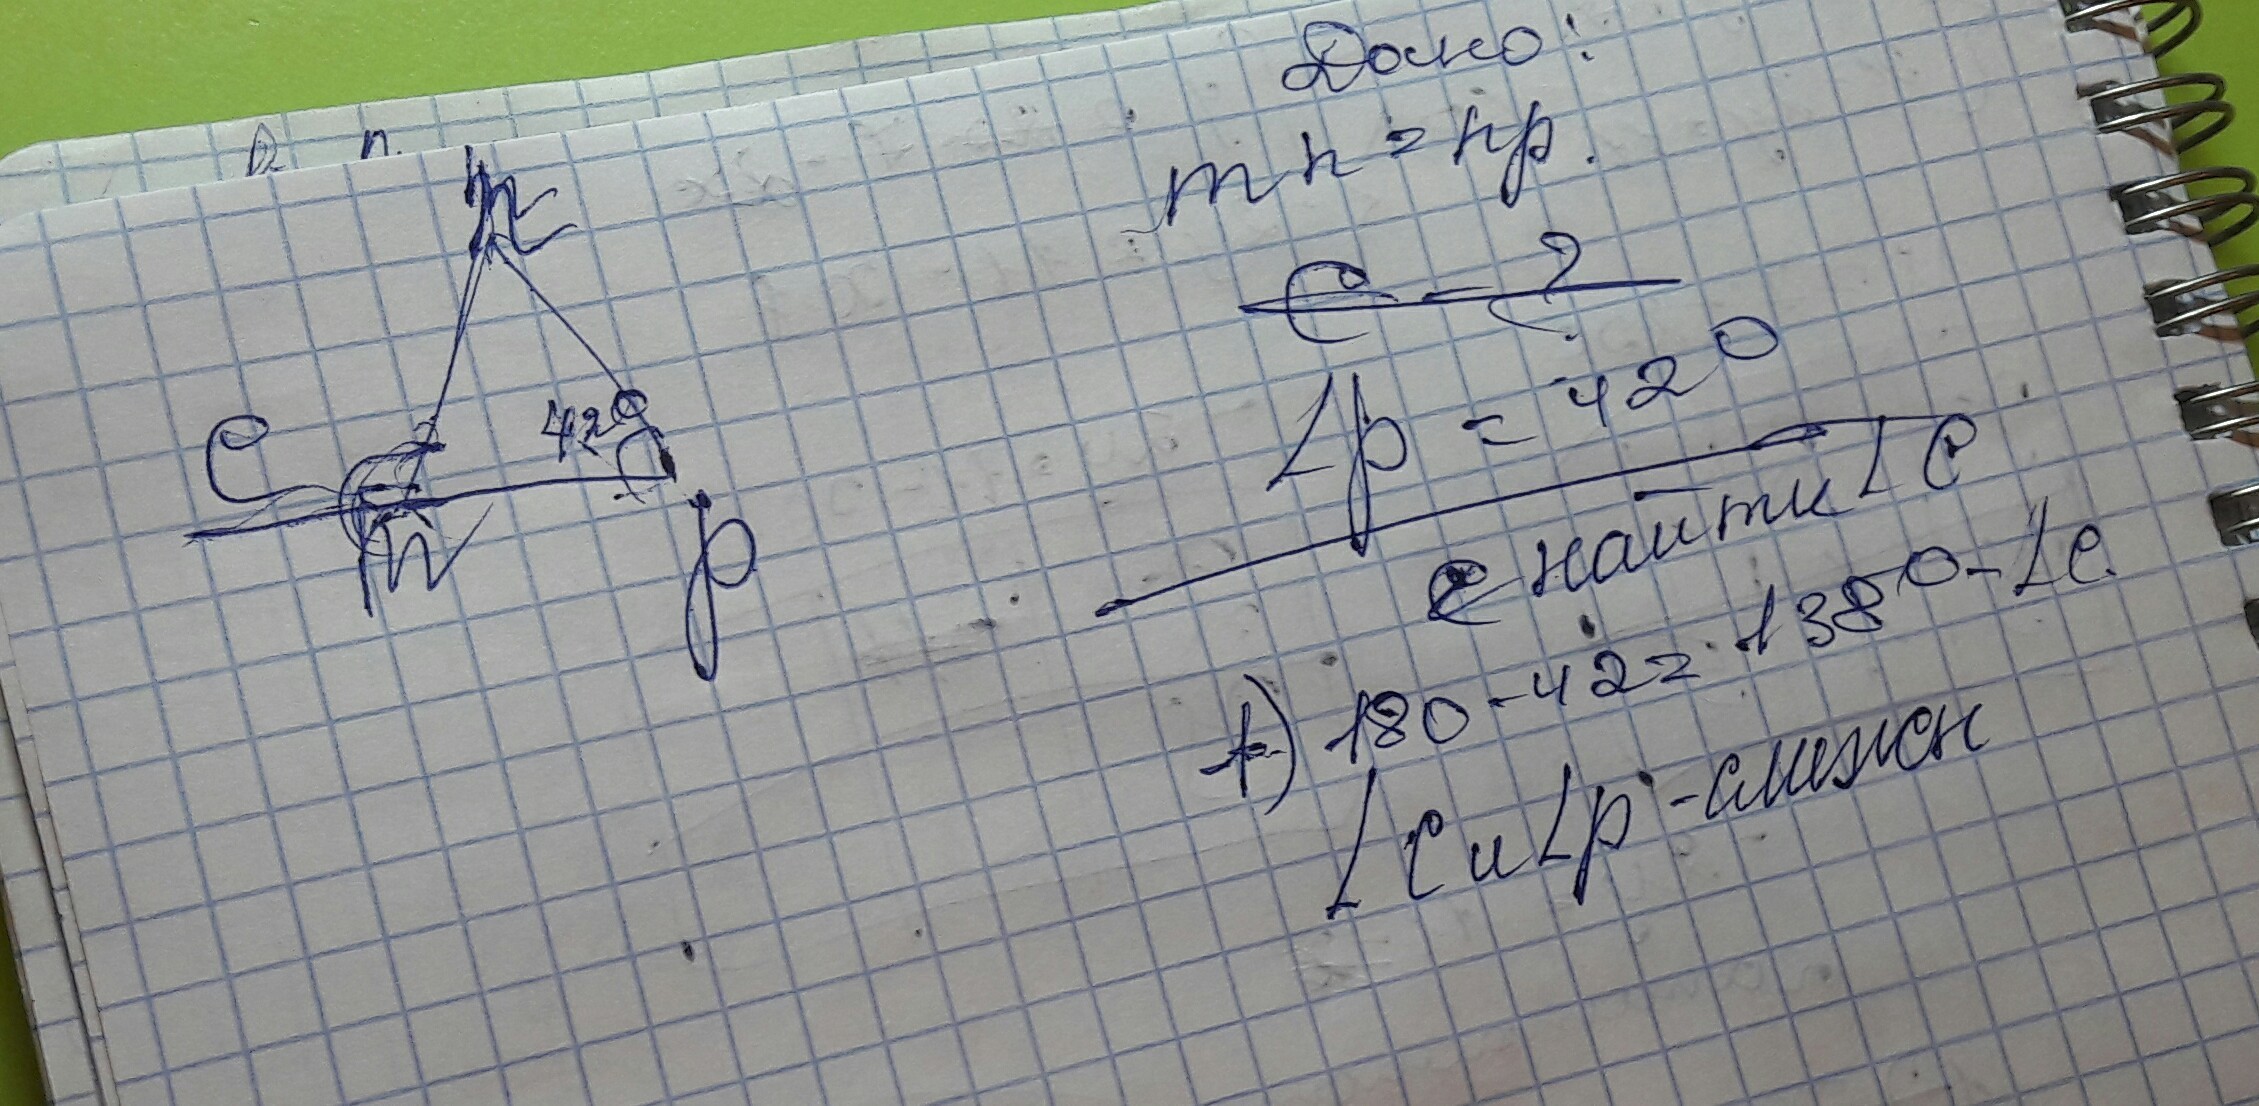 n
C
42°
m
p
Дано:
mn = np.
∠p = 42°
найти ∠C
1) 180-42= 138° - ∠C.
∠C и ∠p - смежн